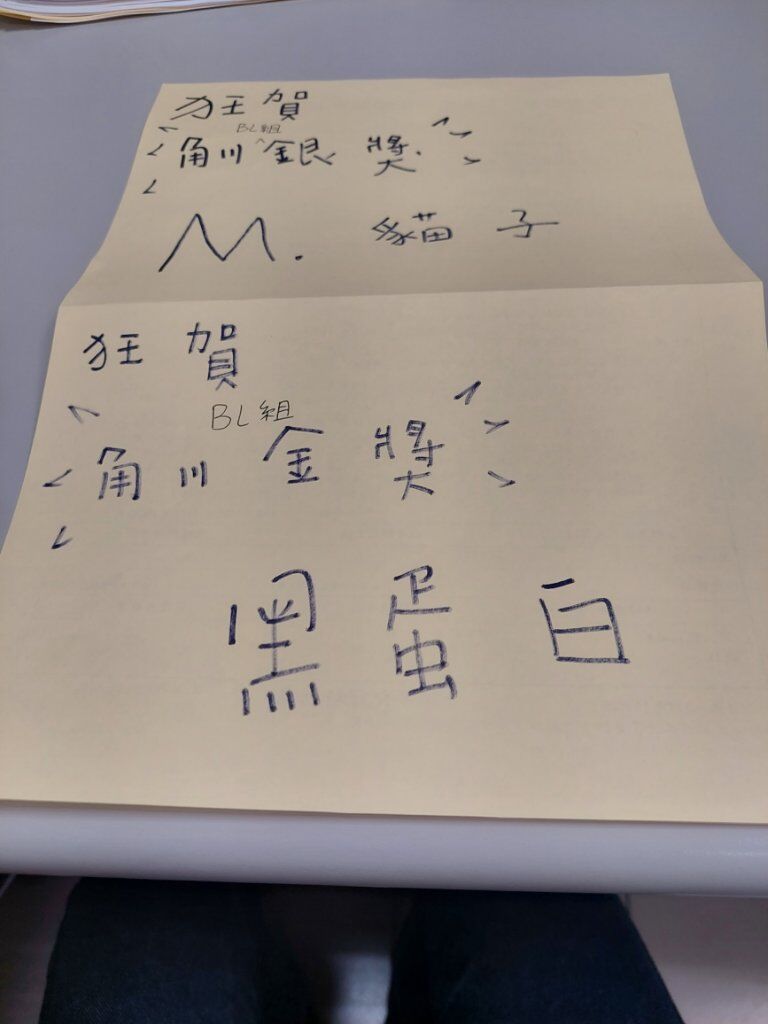 狂賀
BL組
角川銀獎
M. 貓子
狂賀
BL組
角川金獎
黑蛋白